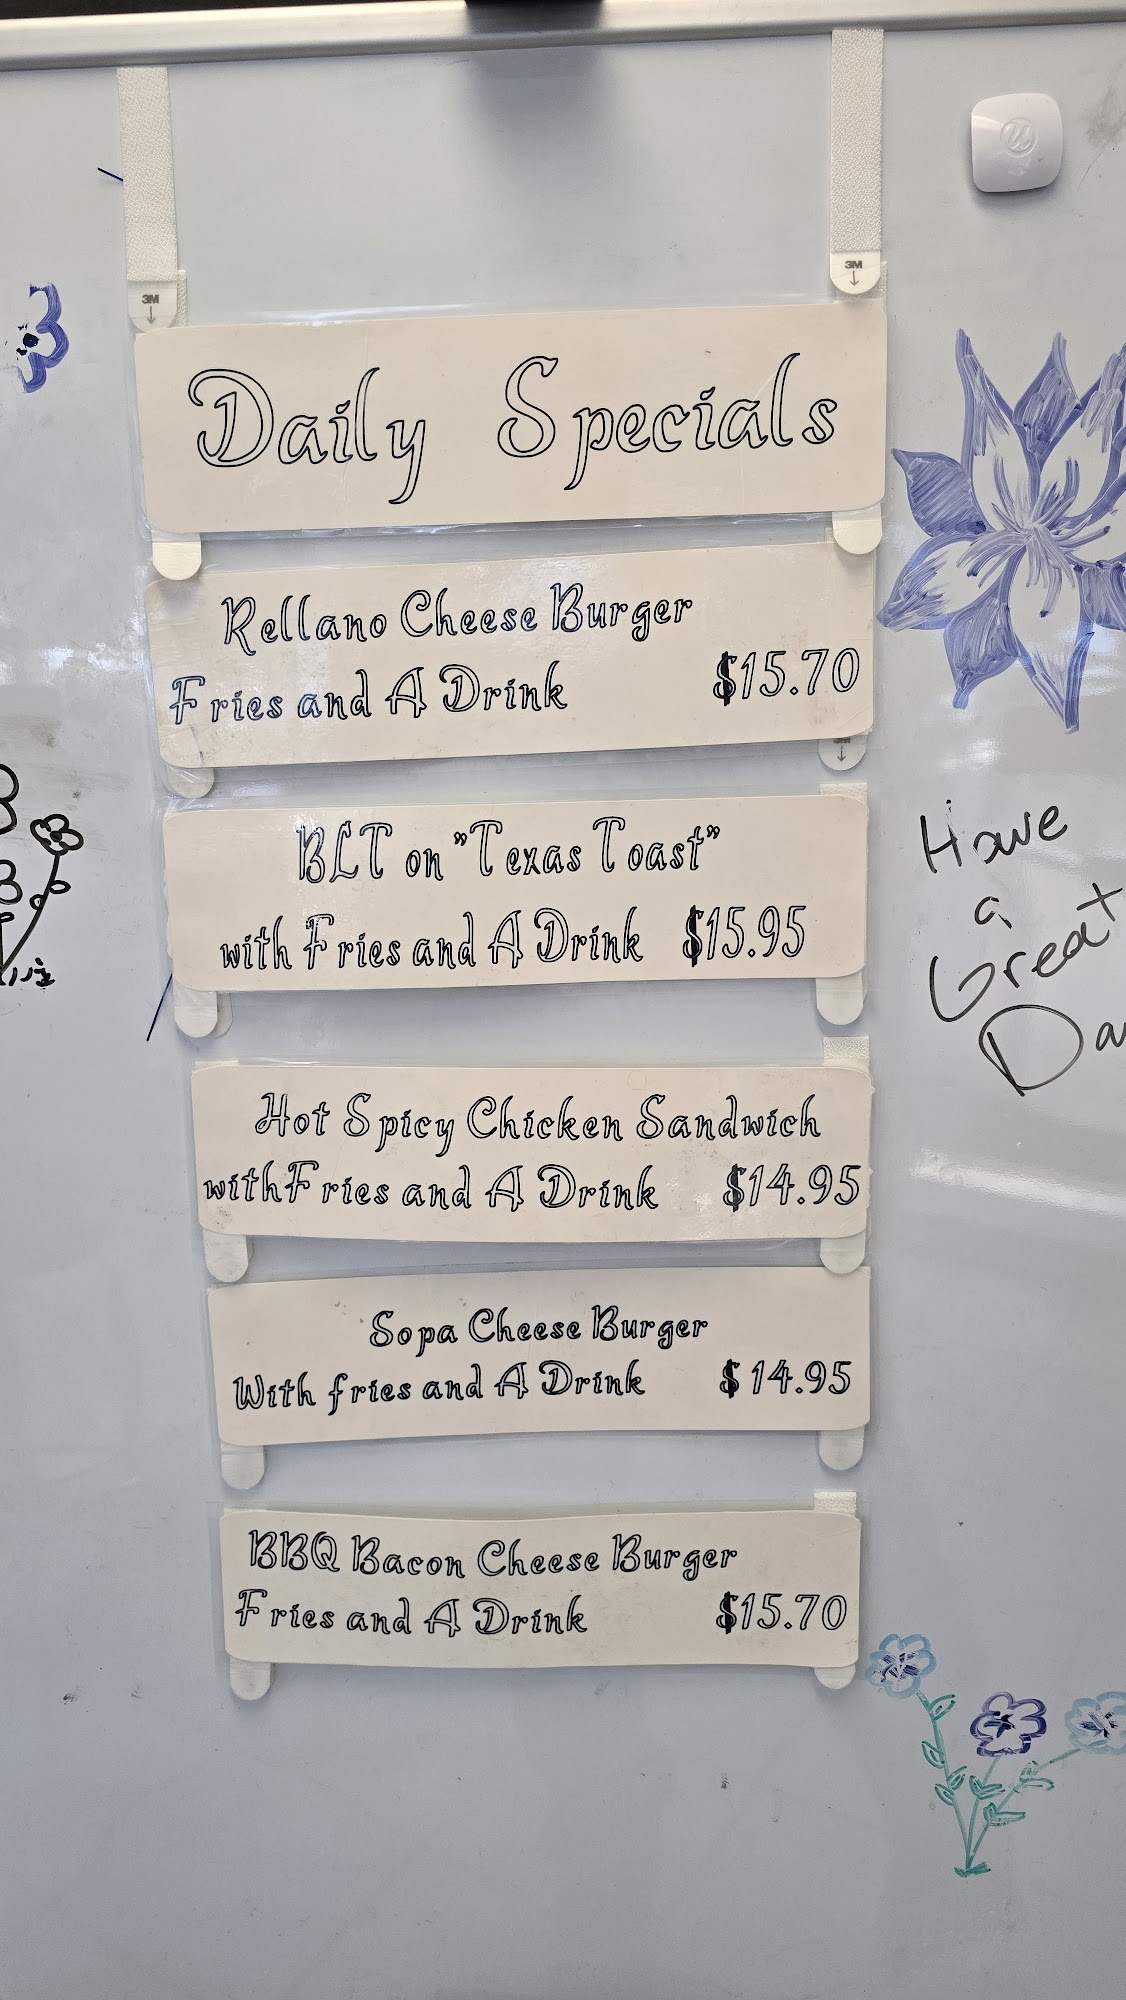 3M
3M
Daily Specials
Rellano Cheese Burger
Fries and A Drink $15.70
3M
BLT on "Texas Toast"
with Fries and A Drink $15.95
Hot Spicy Chicken Sandwich
with Fries and A Drink $14.95
Sopa Cheese Burger
With fries and A Drink $14.95
BBQ Bacon Cheese Burger
Fries and A Drink $15.70
Have
a
Great
Da